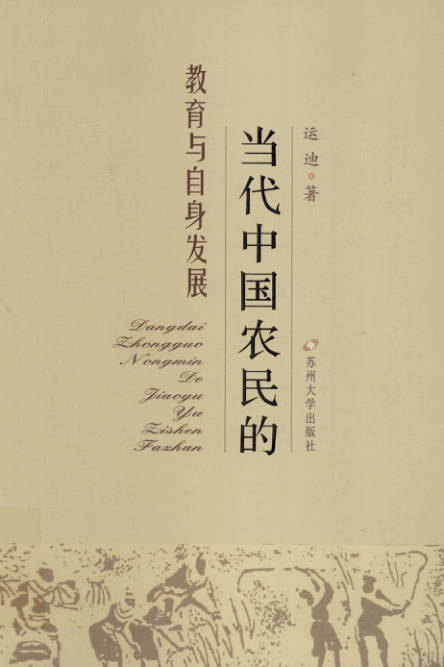 运 迪 著
当代中国农民的
教育与自身发展
Dangdai
Zhongguo
Nongmin
De
Jiaoyu
Yu
Zishen
Fazhan
苏州大学出版社